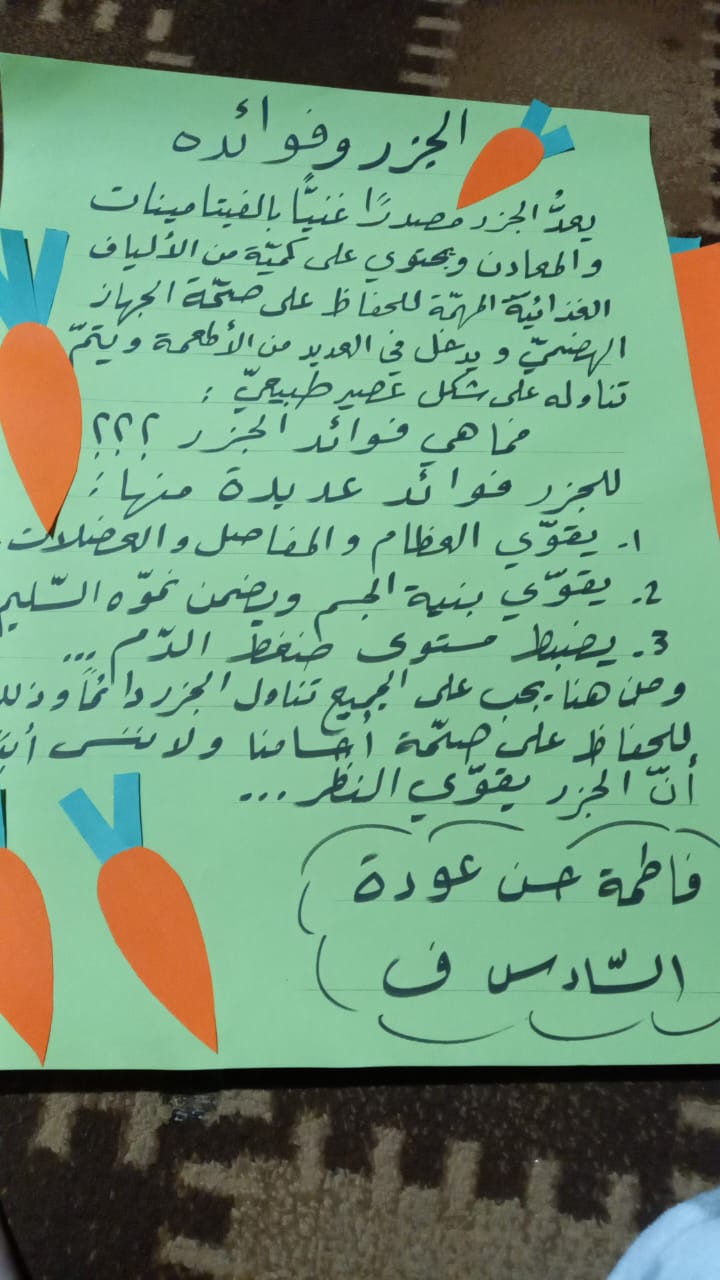 الجزر وفوائده
يعدُّ الجزر مصدرًا غنيًّا بالفيتامينات
والمعادن ويحتوي على كميّة من الألياف
الغذائيّة المهمّة للحفاظ على صحّة الجهاز
الهضميّ و يدخل في العديد من الأطعمة ويتمّ
تناوله على شكل عصير طبيعيّ :
فما هي فوائد الجزر ؟؟؟
للجزر فوائد عديدة منها :
1. يقوّي العظام والمفاصل والعضلات.
2. يقوّي بنية الجسم ويضمن نموّه السّليم
3. يضبط مستوى ضغط الدّم ...
ومن هنا يجب على الجميع تناول الجزر دائمًا
للحفاظ على صحّة أجسامنا ولا ننسى
أنّ الجزر يقوّي النظر ...
فاطمة حسن عودة
السّادس ف